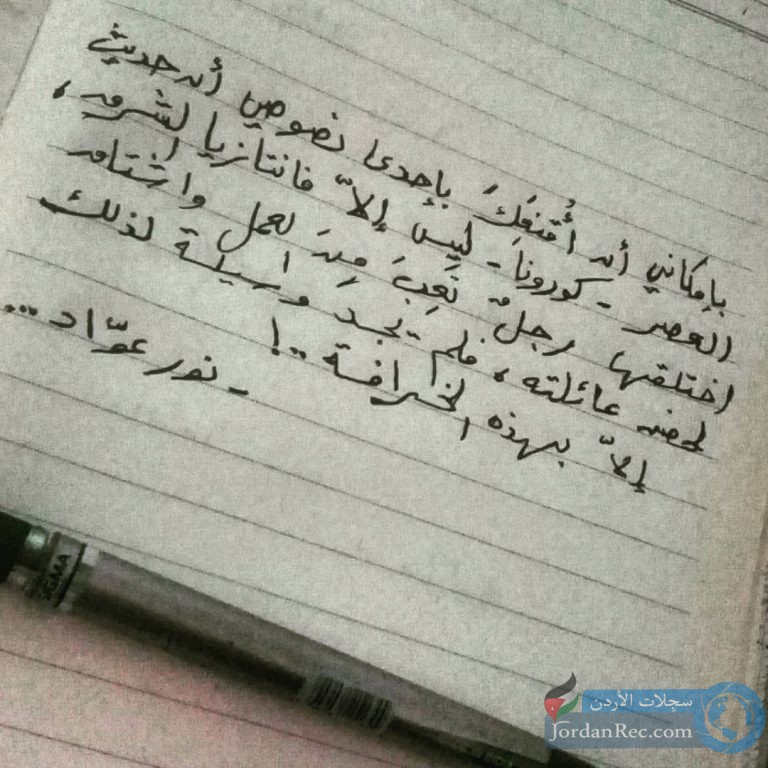 بإمكاني أن أُقنعَكَ بإحدى نصوصي أن حديث
العصر - كورونا - ليس إلاّ فانتازيا لشرقي،
اختلقها رجلٌ تَعِبَ مِنَ العمل واشتاق
لحضن عائلته، فلم يجد وسيلة لذلك
إلاّ بهذه الخرافة ..!
- نور عوّاد ...
SIGMA
سجلات الأردن
JordanRec.com